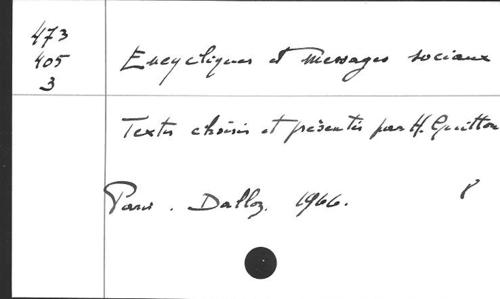 473
405
3
Encycliques et messages sociaux
Textes choisis et présentés par H. Guitton
Paris. Dalloz. 1966.